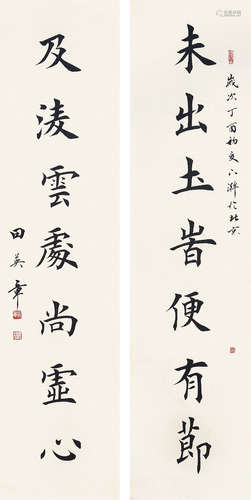 未出土旹便有節
歲次丁酉初夏下澣於北京
及淩雲處尚虛心
田英章